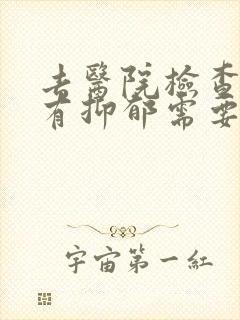 去醫院檢查
有抑郁需要
宇宙第一紅